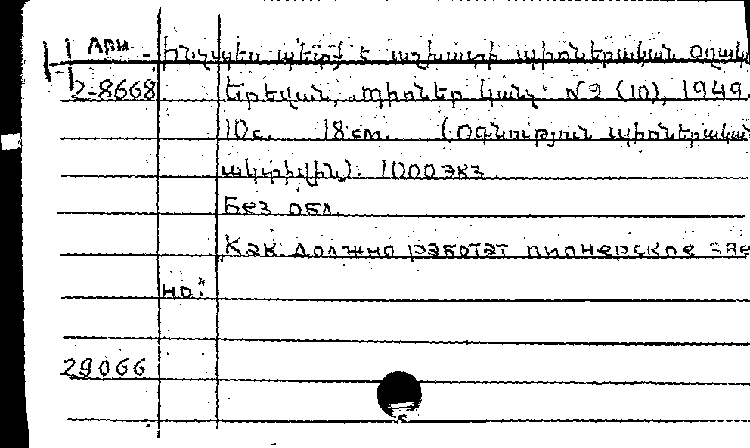 Арм - Ինչպես պետք է աշխատի պիոներական օղակ
2-8668 Երեվան, Պիոներ կանչ. №2 (10), 1949.
10с. 18cm. (Օգնություն պիոներական
ակտիվին). 1000 экз
Без обл.
Как должно работат пионерское зве
но:
29066